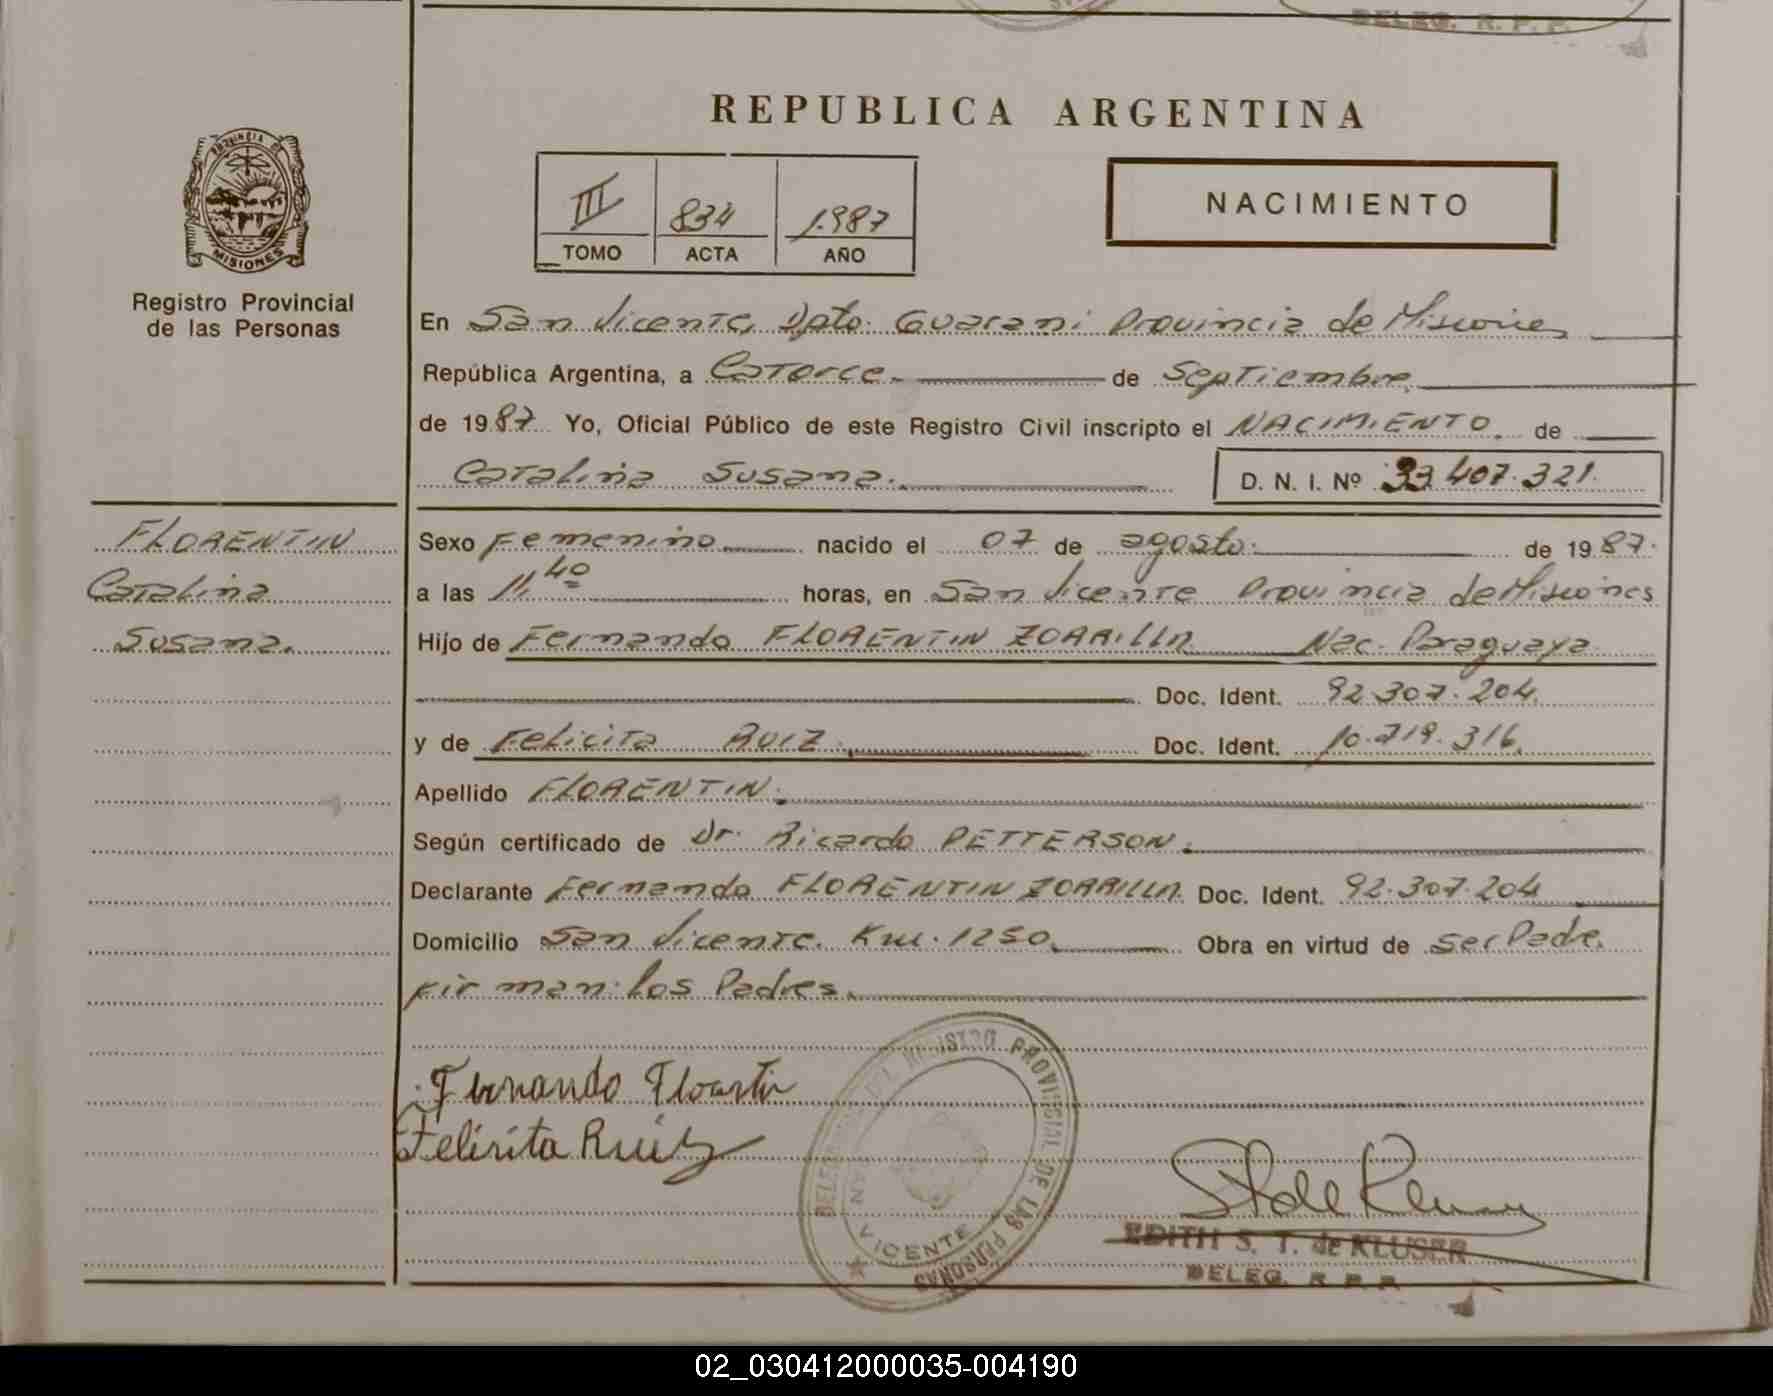 DELEG. R. P. P.
REPUBLICA ARGENTINA
PROVINCIA DE
MISIONES
III
834
1.987
TOMO ACTA AÑO
NACIMIENTO
Registro Provincial
de las Personas
En San Vicente, Dpto. Guarani Provincia de Misiones
República Argentina, a Catorce. de Septiembre.
de 1987 Yo, Oficial Público de este Registro Civil inscripto el NACIMIENTO. de
Catalina Susana. D. N. I. Nº 33.407.321.
FLORENTIN
Catalina
Susana.
Sexo Femenino nacido el 07 de agosto. de 1987.
a las 11,40 horas, en San Vicente Provincia de Misiones
Hijo de Fernando FLORENTIN ZORRILLA Nac. Paraguaya
Doc. Ident. 92.307.204.
y de Felicita RUIZ. Doc. Ident. 10.719.316.
Apellido FLORENTIN.
Según certificado de Dr. Ricardo PETTERSON.
Declarante Fernando FLORENTIN ZORRILLA. Doc. Ident. 92.307.204
Domicilio San Vicente. Km. 1250. Obra en virtud de ser Padre.
firman los Padres.
Fernando
Felisita Ruiz
DEL REGISTRO PROVINCIAL DE LAS PERSONAS
SAN VICENTE
EDITH S. T. de KLUSER
DELEG. R. P. P.
02_030412000035-004190